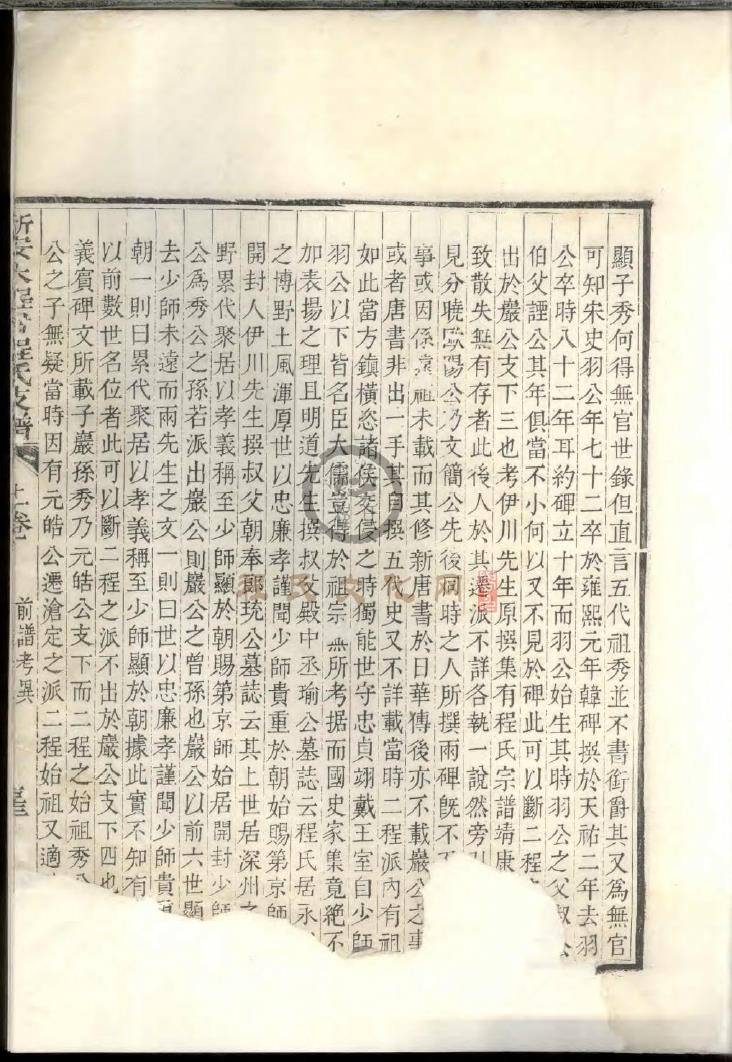 顯子秀何得無官世錄但直言五代祖秀並不書銜爵其又爲無官
可知宋史羽公年七十二卒於雍熙元年韓碑撰於天祐二年去羽
公卒時八十二年耳約碑立十年而羽公始生其時羽公之父叔
伯父諲公其年俱當不小何以又不見於碑此可以斷二程
出於嚴公支下三也考伊川先生原撰集有程氏宗譜靖康
致散失無有存者此後人於其遷派不詳各執一說然旁
見分曉歐陽公乃文簡公先後同時之人所撰兩碑旣不
事或因係遠祖未載而其修新唐書於日華傳後亦不載嚴公之事
或者唐書非出一手其自撰五代史又不詳載當時二程派內有祖
如此當方鎮橫恣諸侯交侵之時獨能世守忠貞翊戴王室自少師
羽公以下皆名臣大儒豈得於祖宗無所考据而國史家集竟絕不
加表揚之理且明道先生撰叔父殿中丞瑜公墓誌云程氏居永
之博野土風渾厚世以忠廉孝謹聞少師貴重於朝始賜第京師
開封人伊川先生撰叔父朝奉郎珫公墓誌云其上世居深州之
野累代聚居以孝義稱至少師顯於朝賜第京師始居開封少師
公爲秀公之孫若派出嚴公則嚴公之曾孫也嚴公以前六世顯
去少師未遠而兩先生之文一則曰世以忠廉孝謹聞少師貴重
朝一則曰累代聚居以孝義稱至少師顯於朝據此實不知有
以前數世名位者此可以斷二程之派不出於嚴公支下四也
義賓碑文所載子嚴孫秀乃元皓公支下而二程之始祖秀公
公之子無疑當時因有元皓公遷滄定之派二程始祖又適
新安大程村程氏支譜 上卷 前譜考異
徽民文化网